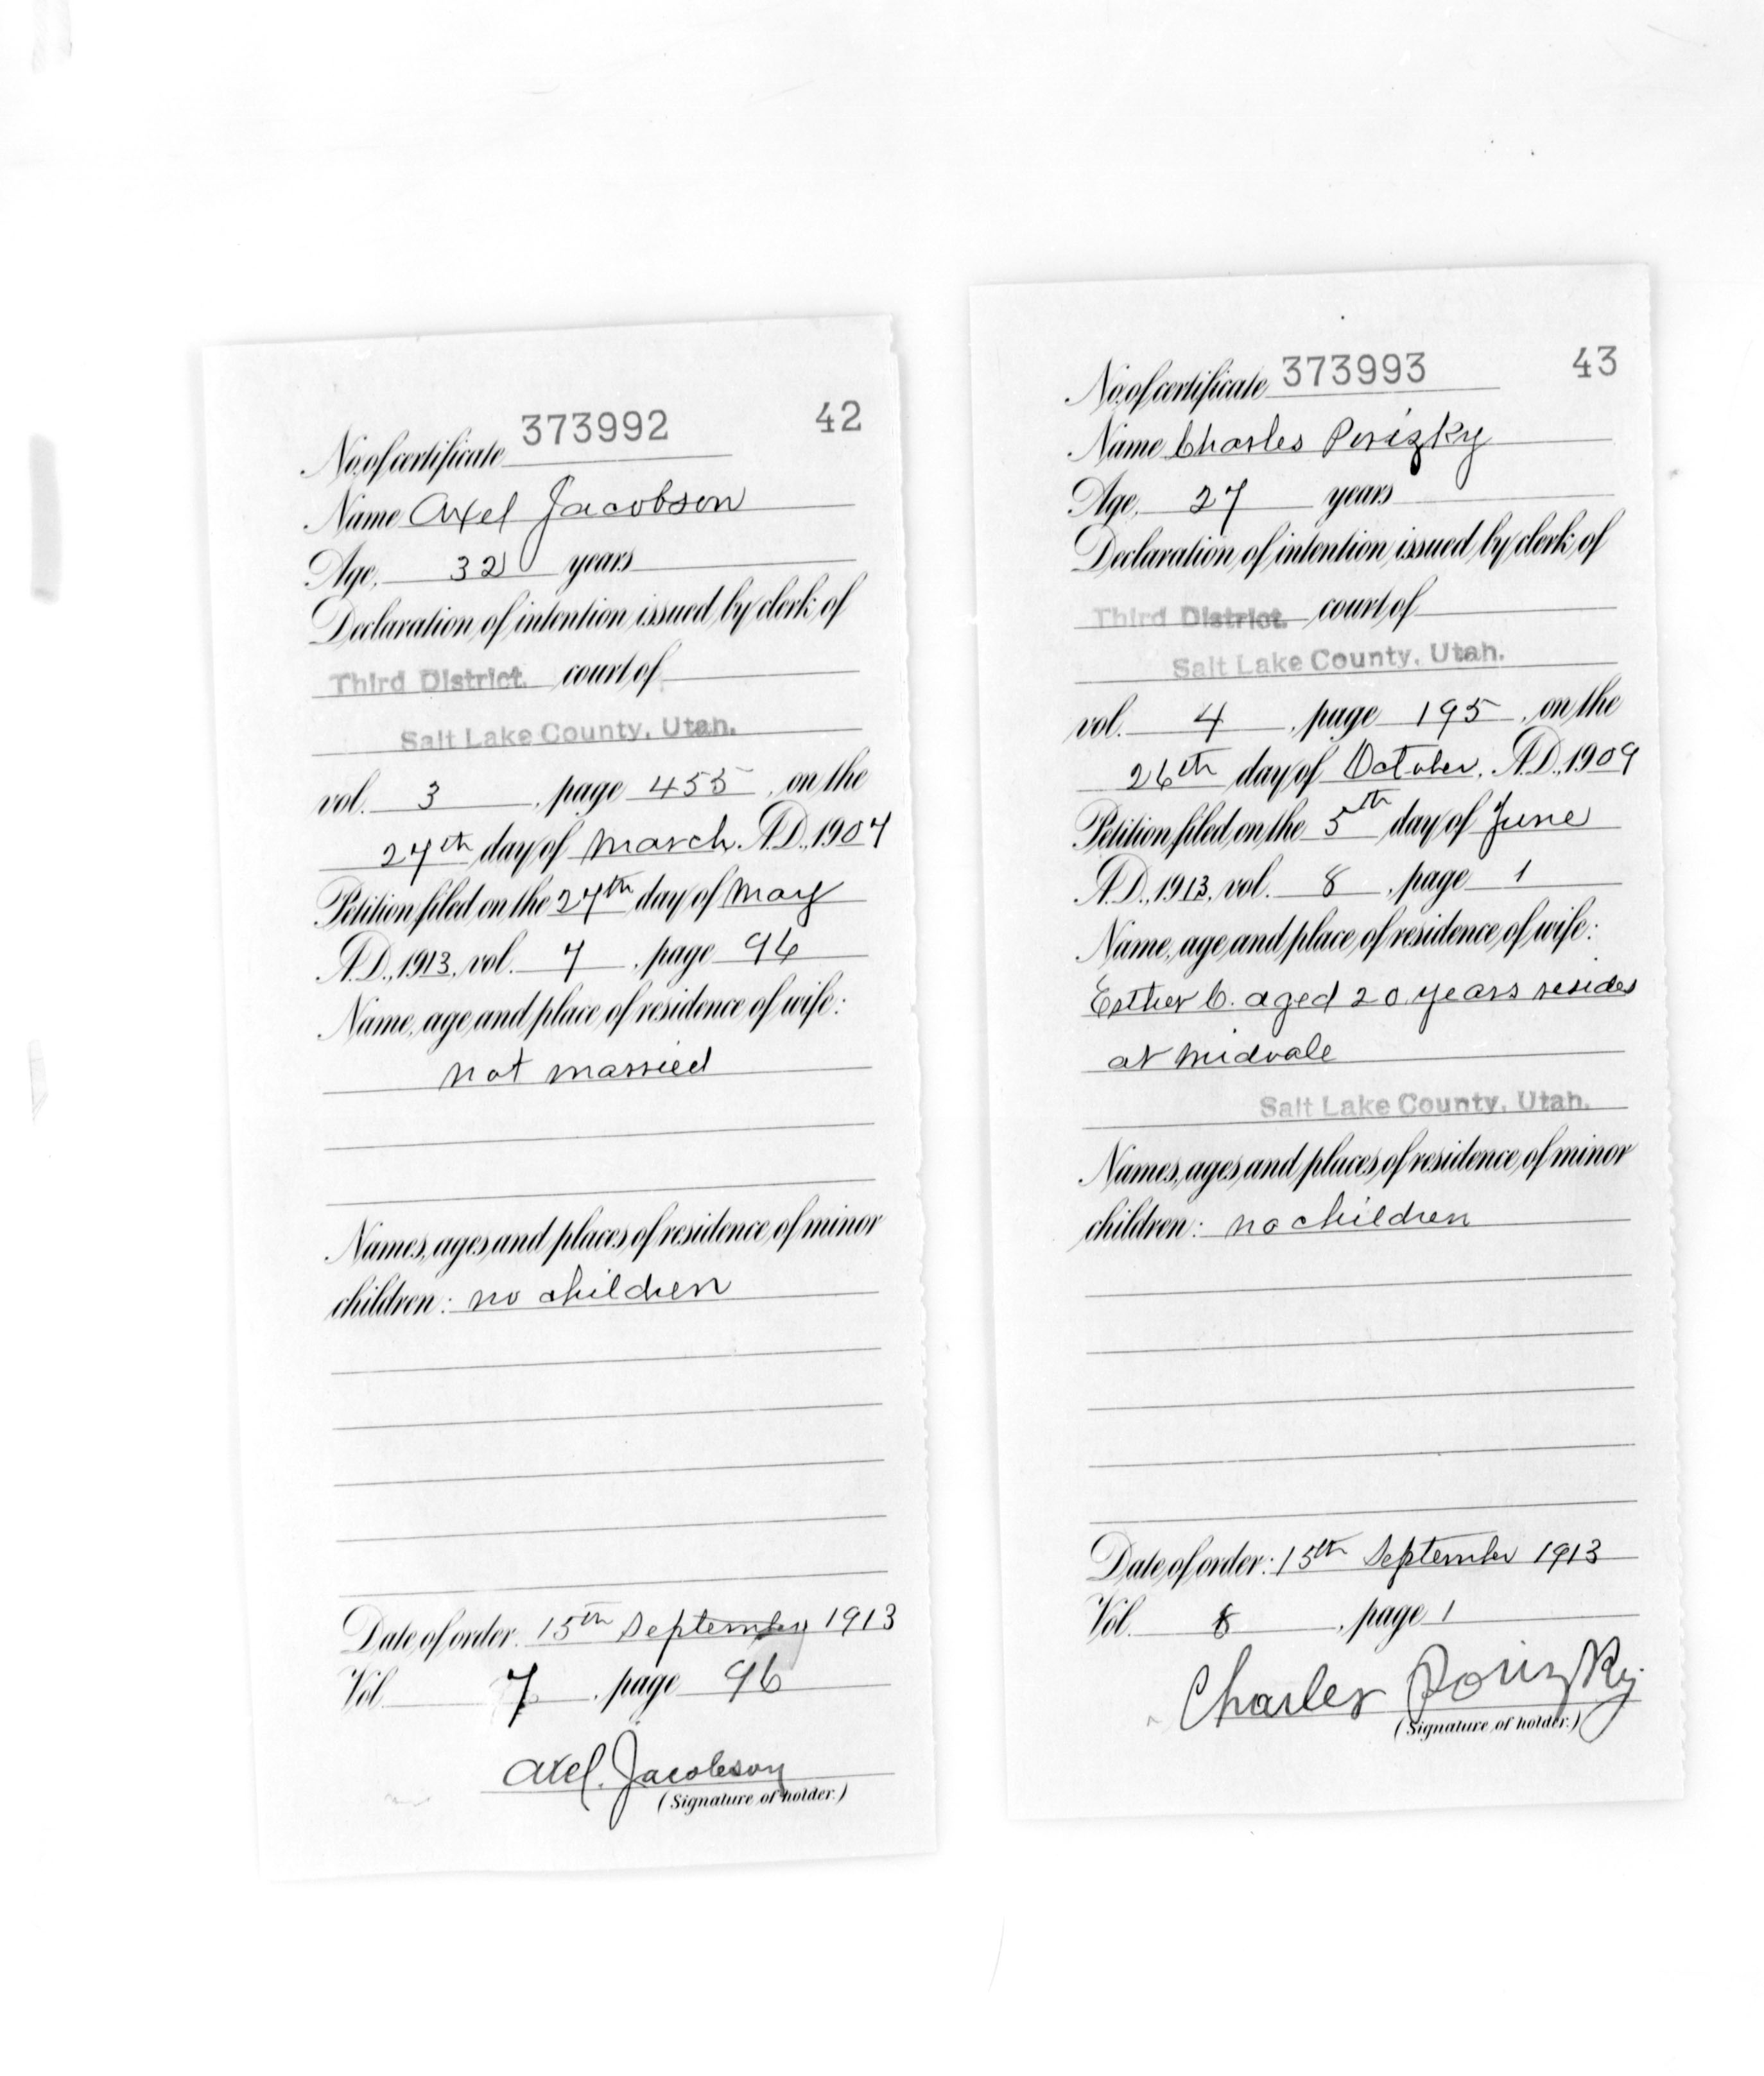 373992 42
No. of certificate
Name Axel Jacobson
Age, 32 years
Declaration of intention issued by clerk of
Third District. court of
Salt Lake County, Utah.
vol. 3, page 455, on the
27th day of March, A.D., 1907
Petition filed on the 27th day of May
A.D., 1913, vol. 7, page 96
Name, age and place of residence of wife:
not married
Names, ages and places of residence of minor
children: no children
Date of order: 15th September 1913
Vol. 7, page 96
Axel. Jacobson
(Signature of holder.)
No. of certificate 373993 43
Name Charles Porizky
Age, 27 years
Declaration of intention issued by clerk of
Third District. court of
Salt Lake County, Utah.
vol. 4, page 195, on the
26th day of October, A.D., 1909
Petition filed on the 5th day of June
A.D., 1913, vol. 8, page 1
Name, age and place of residence of wife:
Esther C. aged 20 years resides
at Midvale
Salt Lake County, Utah.
Names, ages and places of residence of minor
children: no children
Date of order: 15th September 1913
Vol. 8, page 1
Charles Porizky
(Signature of holder.)